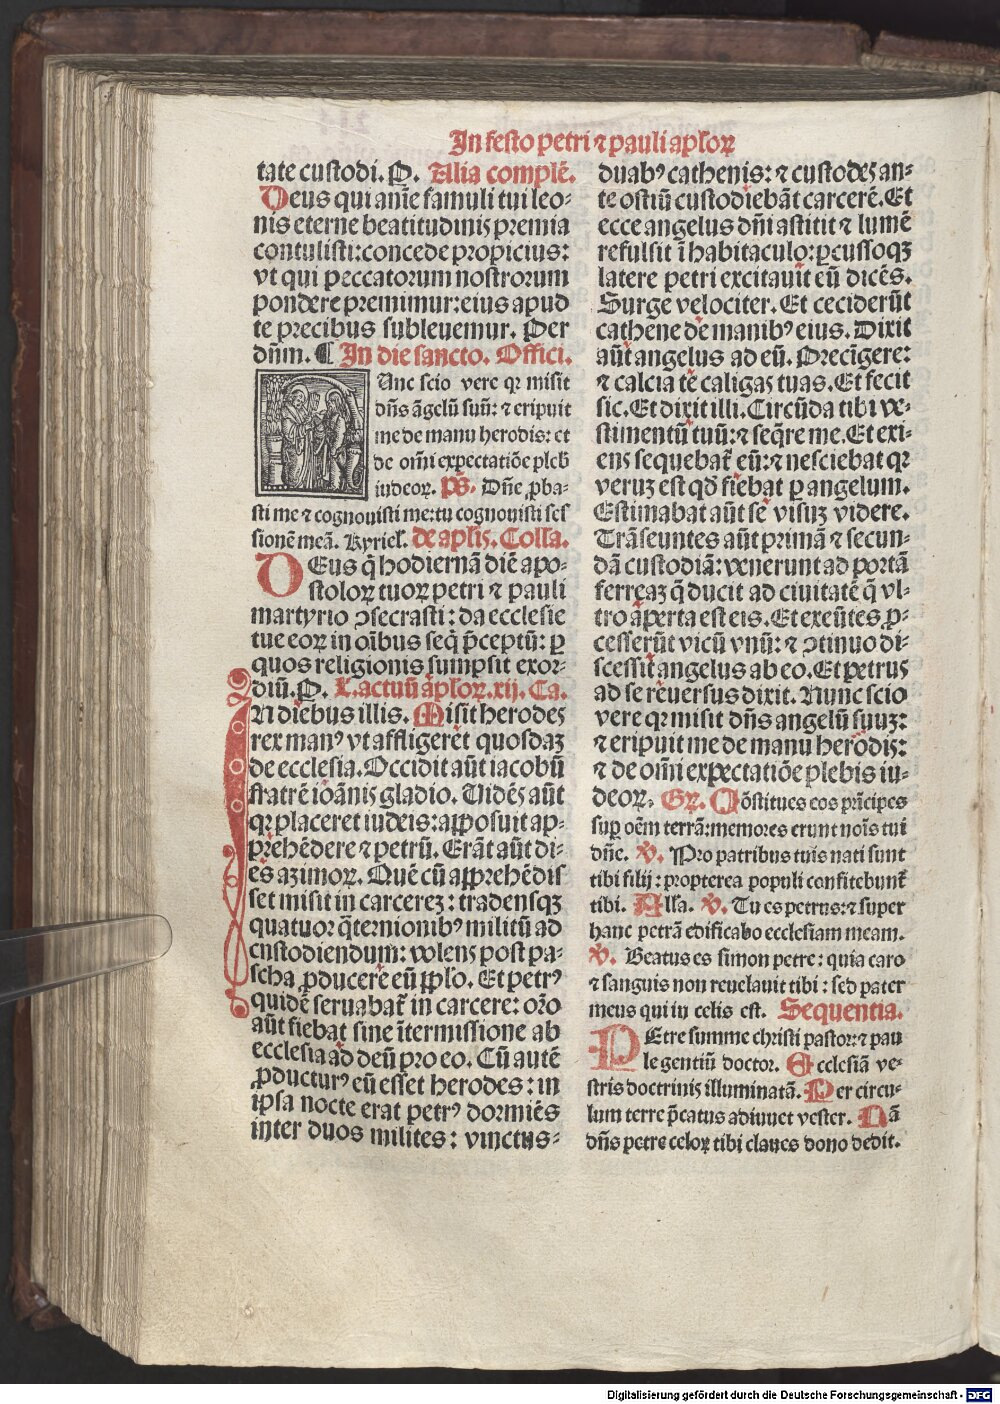 In festo petri ⁊ pauli aploꝝ
tate custodi. P. Alia complē.
Deus qui anīe famuli tui leo-
nis eterne beatitudinis premia
contulisti: concede propicius:
vt qui peccatorum nostrorum
pondere premimur: eius apud
te precibus subleuemur. Per
dn̄m. ¶ In die sancto. Offici.
NAnc scio vere qꝛ misit
dn̄s āgelū suū: ⁊ eripuit
me de manu herodis: et
de om̄i expectatiōe pleb̄
iudeoꝝ. Ps̄. Dn̄e ꝓba-
sti me ⁊ cognouisti me: tu cognouisti ses
sionē meā. Kyriel'. De aplis. Colla.
DEus q̄ hodiernā diē apo-
stoloꝝ tuoꝝ petri ⁊ pauli
martyrio ꝯsecrasti: da ecclesie
tue eoꝝ in oībus seq̄ p̄ceptū: ꝑ
quos religionis sumpsit exor-
diū. P. L. actuū aploꝝ. xij. Ca.
IN diebus illis. Misit herodes
rex manꝰ vt affligeret quosdaz
de ecclesia. Occidit aūt iacobū
fratrē ioānis gladio. Uidēs aūt
qꝛ placeret iudeis: apposuit ap-
prehēdere ⁊ petrū. Erāt aūt di-
es azimoꝝ. Quē cū apprehēdis
set misit in carcerez: tradensqꝫ
quatuor q̄ternionibꝰ militū ad
custodiendum: volens post pa-
scha ꝓducere eū pplo. Et petrꝰ
quidē seruabat̄ in carcere: oro
aūt fiebat sine ītermissione ab
ecclesia ad deū pro eo. Cū autē
ꝓducturꝰ eū esset herodes: in
ipsa nocte erat petrꝰ dormiēs
inter duos milites: vinctus-
duabꝰ cathenis: ⁊ custodes an-
te ostiū custodiebāt carcerē. Et
ecce angelus dn̄i astitit ⁊ lumē
refulsit ī habitaculo: ꝑcussoqꝫ
latere petri excitauit eū dicēs.
Surge velociter. Et ceciderūt
cathene de manibꝰ eius. Dixit
aūt angelus ad eū. Precīgere:
⁊ calcia te caligas tuas. Et fecit
sic. Et dixit illi. Circūda tibi ve-
stimentū tuū: ⁊ seq̄re me. Et exi-
ens sequebat̄ eū: ⁊ nesciebat qꝛ
veruz est qd̄ fiebat ꝑ angelum.
Estimabat aūt se visuz videre.
Trāseuntes aūt primā ⁊ secun-
dā custodiā: venerunt ad portā
ferreaz q̄ ducit ad ciuitatē q̄ vl-
tro aperta est eis. Et exeūtes ꝓ-
cesserūt vicū vnū: ⁊ ꝯtinuo di-
scessit angelus ab eo. Et petrus
ad se reuersus dixit. Nunc scio
vere qꝛ misit dn̄s angelū suuz:
⁊ eripuit me de manu herodis:
⁊ de om̄i expectatiōe plebis iu-
deoꝝ. Gꝝ. Cōstitues eos prīcipes
suꝑ oēm terrā: memores erunt noīs tui
dn̄e. ℣. Pro patribus tuis nati sunt
tibi filij: propterea populi confitebunt̄
tibi. Alla. ℣. Tu es petrus: ⁊ super
hanc petrā edificabo ecclesiam meam.
℣. Beatus es simon petre: quia caro
⁊ sanguis non reuelauit tibi: sed pater
meus qui in celis est. Sequentia.
PEtre summe christi pastor: ⁊ pau
le gentiū doctor. Ecclesiā ve-
stris doctrinis illuminatā. Per circu-
lum terre p̄catus adiuuet vester. Nā
dn̄s petre celoꝝ tibi claues dono dedit.
Digitalisierung gefördert durch die Deutsche Forschungsgemeinschaft - DFG